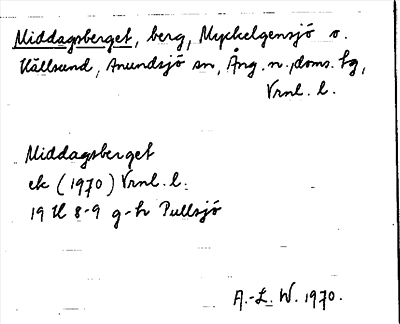 Middagsberget, berg, Myckelgensjö o.
Källsund, Anundsjö sn, Ång. n. doms. tg,
Vrnl. l.
Middagsberget
ek (1970) Vrnl. l.
19 H 8-9 g-h Pullsjö
A.-L. W. 1970.